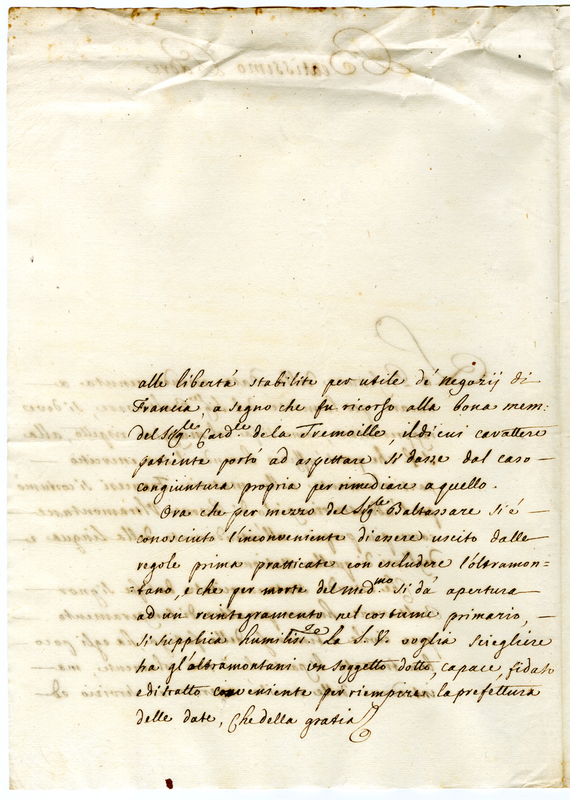 alle libertá stabilite per utile dé negozij di
Francia, a segno che fu ricorso alla bona mem:
del Sig.le Card.le de la Tremoille, il di cui carattere
patiente portò ad aspettare si dasse dal caso —
congiuntura propria per rimediare a quello.
Ora che per mezzo del Sig.le Baltassare si é —
conosciuto l'inconveniente di essere uscito dalle
regole prima pratticate con escludere l'oltramon-
tano, e che per morte del med.mo si dá apertura
ad un reintegramento nel costume primario, —
si supplica humiliss. La S. V. voglia sciegliere
fra gl'altramontani un soggetto dotto, capace, fidato
e di tratto conveniente per riempire la prefettura
delle date, Che della gratia